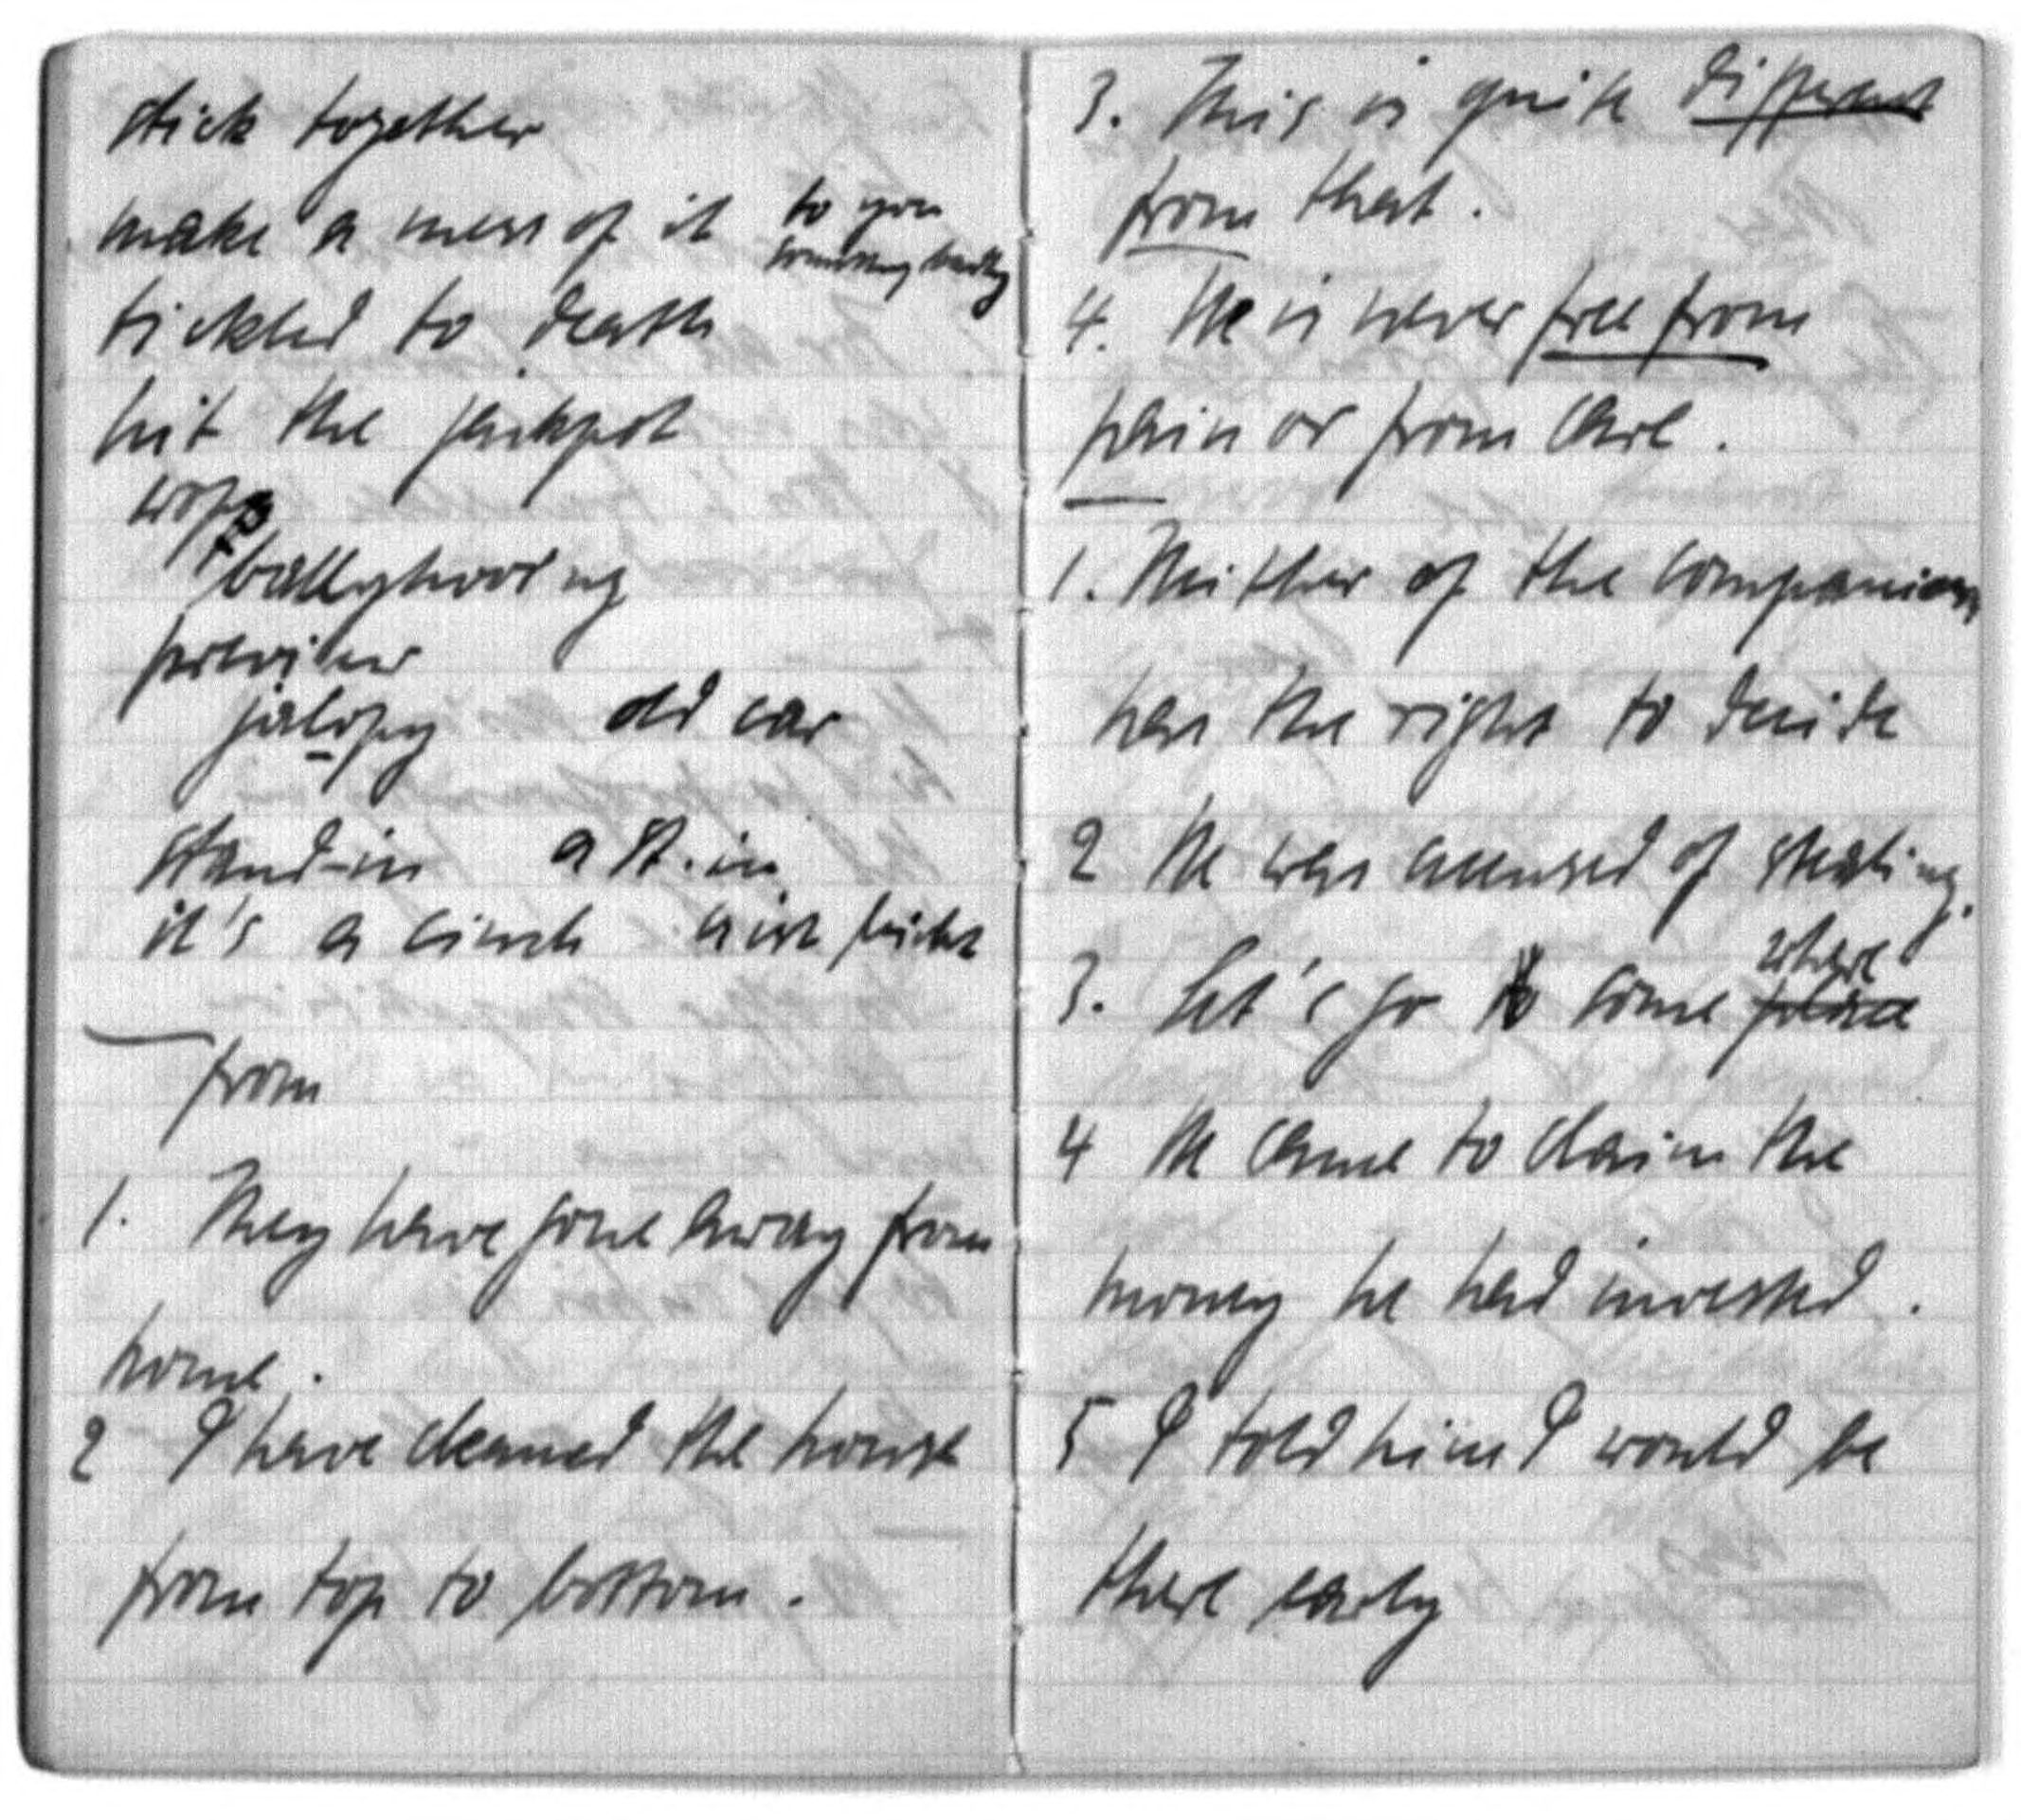 stick together
make a mess of it to you
something badly
tickled to death
hit the jackpot
ballyhooing
preview
jalopy old car
stand-in a st. in
it's a cinch leicht
from
1. They have gone away from
home.
2 I have cleaned the house
from top to bottom.
3. This is quite different
from that.
4. He is never free from
pain or from care.
1. Neither of the companions
has the right to decide
2 He was accused of stealing.
where
3. Let's go to some place
4 He came to claim the
money he had invested.
5 I told him I would be
there early